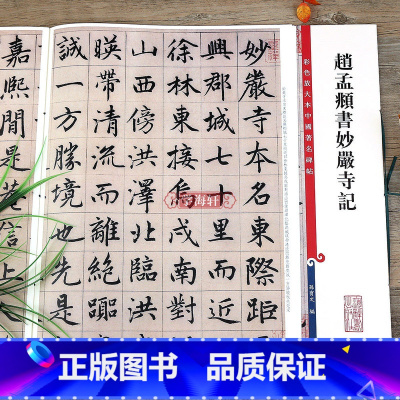 趙孟頫書妙嚴寺記
彩色放大本中國著名碑帖
孫寶文 編
妙嚴寺本名東際距
興郡城七十里而近
徐林東接烏戍南對
山西傍洪澤北臨洪
暎帶清流而離絶躢
誠一方勝境也先是
嘉熙間是菴信上
海轩
正版书籍 品质保障 电子发票